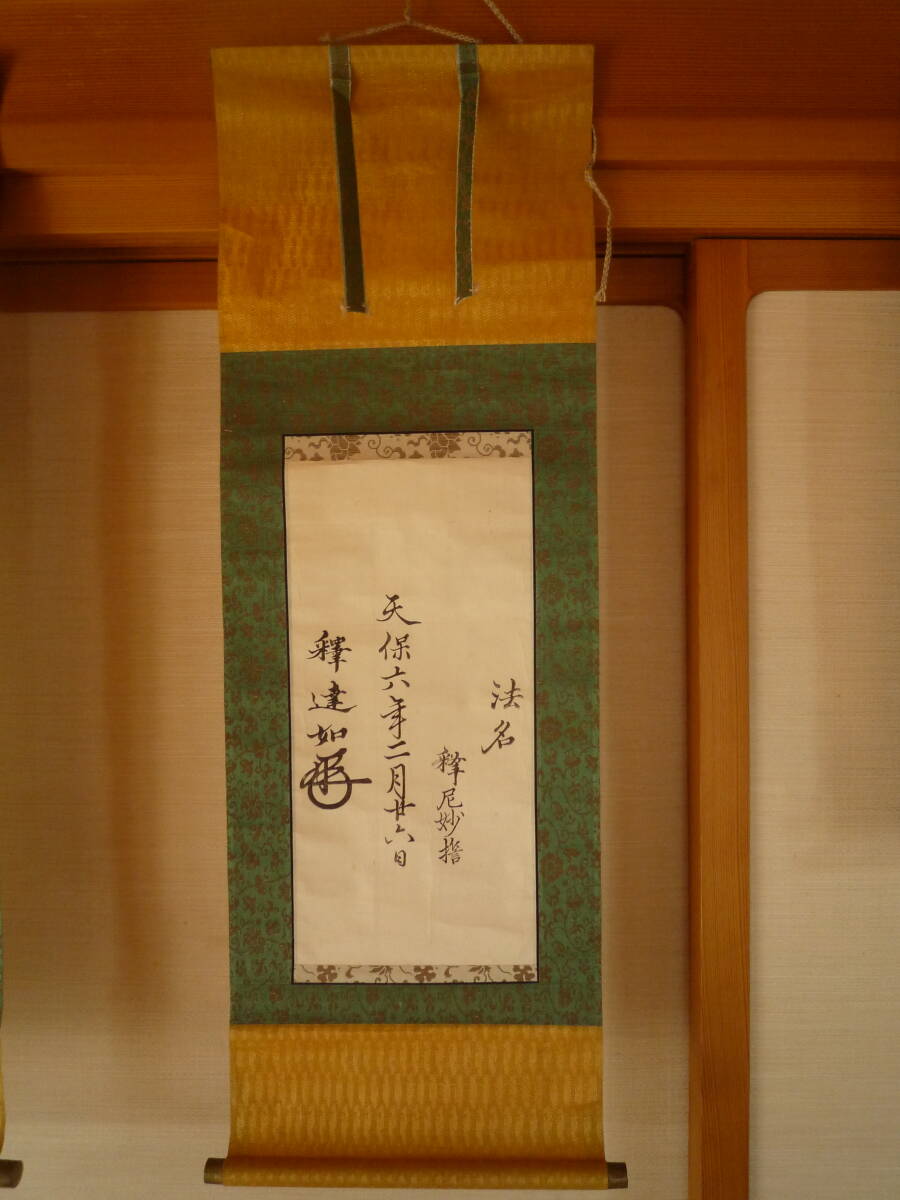 法名
釋尼妙
天保六年二月廿六日
釋達如